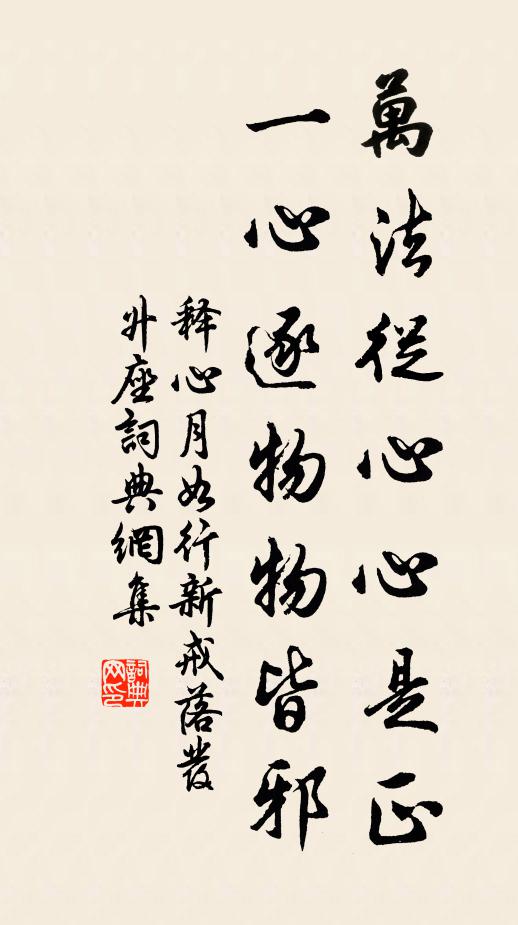 萬法從心心是正
一心逐物物皆邪
释心月如行新戒落發
升座詞典網集
詞典
网印